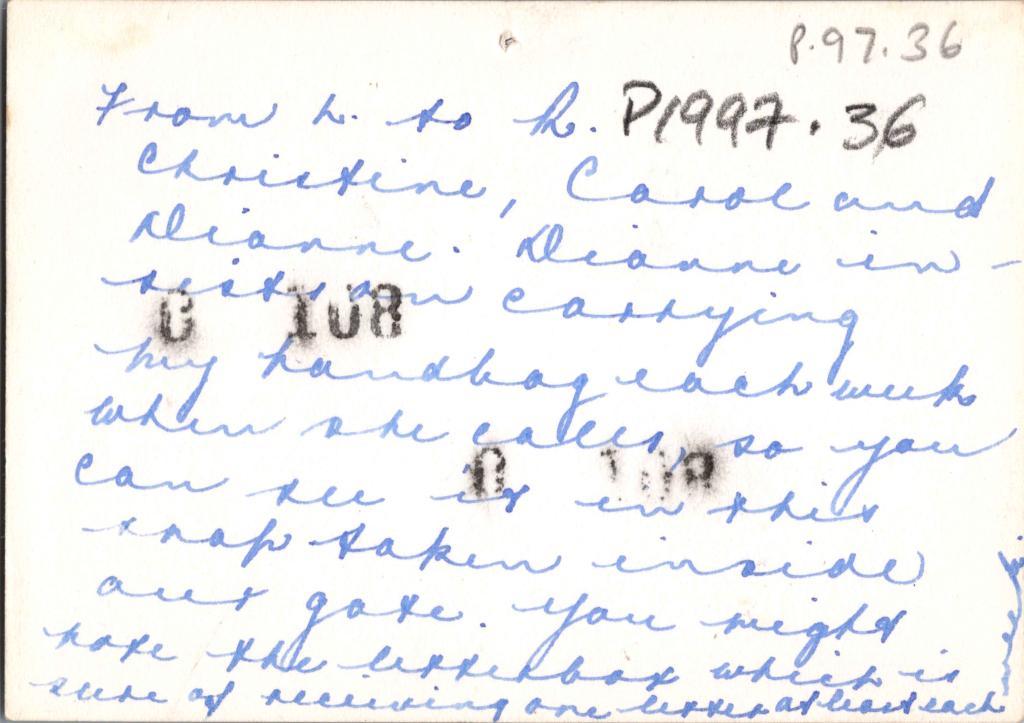 P.97.36
From L. to R. P1997.36
Christine, Carol and
Dianne. Dianne in-
sists on carrying
C 108
my handbag each week
when she calls, so you
C 108
can see it in this
snap taken inside
our gate. You might
note the letterbox which is
sure of receiving one letter at least each